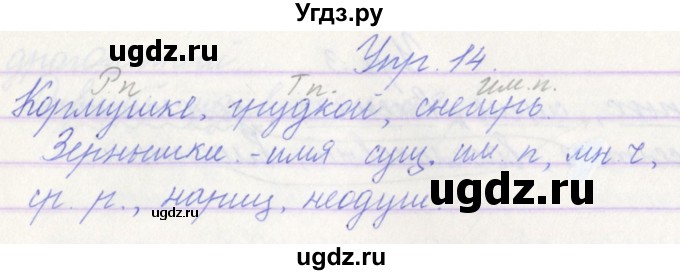 Угдз.ру
ugdz.ru ugdz.ru
Упр. 14.
Р.п. Т.п. им.п.
Кормушке, грудкой, снегирь.
Зернышки. - имя сущ. им. п., мн. ч,
ugdz.ru ugdz.ru
ср. р., нариц, неодуш.
ugdz.ru
ugdz.ru